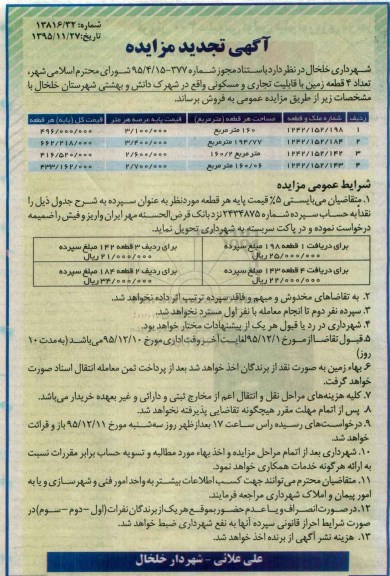 شماره: ۱۳۸۱۶/۳۲
تاریخ: ۱۳۹۵/۱۱/۲۷
آگهی تجدید مزایده
شهرداری خلخال در نظر دارد باستناد مجوز شماره ۳۷۷-۹۵/۴/۱۵ شورای محترم اسلامی شهر،
تعداد ۴ قطعه زمین با قابلیت تجاری و مسکونی واقع در شهرک دانش و بهشتی شهرستان خلخال با
مشخصات زیر از طریق مزایده عمومی به فروش برساند.
ردیف شماره ملک و قطعه مساحت هر قطعه (مترمربع) قیمت پایه عرصه هر متر قیمت کل (پایه) هر قطعه
۱ ۱۲۴۲/۱۵۲/۱۹۸ ۱۶۰ متر مربع ۳/۱۰۰/۰۰۰ ۴۹۶/۰۰۰/۰۰۰
۲ ۱۲۴۲/۱۵۲/۱۸۴ ۱۹۴/۷۷ متر مربع ۳/۴۰۰/۰۰۰ ۶۶۲/۲۱۸/۰۰۰
۳ ۱۲۴۲/۱۵۲/۱۴۲ ۱۶۰/۲ متر مربع ۲/۶۰۰/۰۰۰ ۴۱۶/۵۲۰/۰۰۰
۴ ۱۲۴۲/۱۵۲/۱۴۳ ۱۶۰/۰۶ متر مربع ۲/۷۰۰/۰۰۰ ۴۳۳/۱۶۲/۰۰۰
شرایط عمومی مزایده
۱. متقاضیان می‌بایستی ۵٪ قیمت پایه هر قطعه مورد نظر به عنوان سپرده به شرح جدول ذیل را
نقدا به حساب سپرده شماره ۲۴۳۴۸۷۵ نزد بانک قرض الحسنه مهر ایران واریز و فیش را ضمیمه
درخواست نموده و در پاکت سربسته به شهرداری تحویل نماید.
برای دریافت ۱ قطعه ۱۹۸ مبلغ سپرده ۲۵/۰۰۰/۰۰۰ ریال
برای ردیف ۳ قطعه ۱۴۲ مبلغ سپرده ۲۱/۰۰۰/۰۰۰ ریال
برای دریافت ۴ قطعه ۱۴۳ مبلغ سپرده ۲۲/۰۰۰/۰۰۰ ریال
برای ردیف ۲ قطعه ۱۸۴ مبلغ سپرده ۳۴/۰۰۰/۰۰۰ ریال
۲. به تقاضاهای مخدوش و مبهم و فاقد سپرده ترتیب اثر داده نخواهد شد.
۳. سپرده نفر دوم تا انجام معامله با نفر اول مسترد نخواهد شد.
۴. شهرداری در رد یا قبول هر یک از پیشنهادات مختار خواهد بود.
۵. قبول تقاضا از مورخ ۹۵/۱۲/۱ لغایت آخر وقت اداری مورخ ۹۵/۱۲/۱۰ می‌باشد (به مدت ۱۰
روز)
۶. بهاء زمین به صورت نقد از برندگان اخذ خواهد شد بعد از پرداخت ثمن معامله انتقال اسناد صورت
خواهد گرفت.
۷. کلیه هزینه‌های مراحل نقل و انتقال اعم از مخارج ثبتی و دارائی و غیر بعهده خریدار می‌باشد.
۸. پس از اتمام مهلت مقرر هیچگونه تقاضایی پذیرفته نخواهد شد.
۹. درخواست‌های رسیده راس ساعت ۱۷ بعدازظهر روز سه‌شنبه مورخ ۹۵/۱۲/۱۱ باز و قرائت
خواهد شد.
۱۰. شهرداری بعد از اتمام مراحل مزایده و اخذ بهاء مورد مطالبه و تسویه حساب برابر مقررات نسبت
به ارائه هرگونه خدمات همکاری خواهد نمود.
۱۱. متقاضیان محترم می‌توانند جهت کسب اطلاعات بیشتر به واحد امور فنی و شهرسازی و یا به
امور پیمان و املاک شهرداری مراجعه فرمایند.
۱۲. در صورت انصراف و یا عدم حضور بموقع هر یک از برندگان نفرات (اول - دوم - سوم) در
صورت شرایط احراز قانونی سپرده آنها به نفع شهرداری ضبط خواهد شد.
۱۳. هزینه نشر آگهی از برنده اخذ خواهد شد.
علی علائی - شهردار خلخال